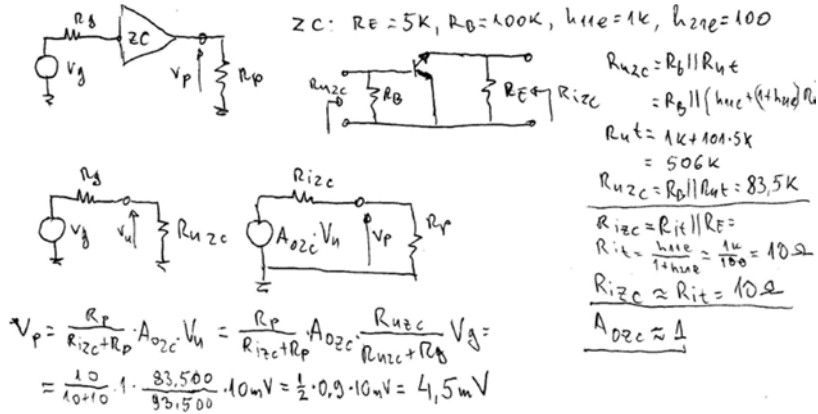 ZC: RE = 5K, RB = 100K, h11e = 1k, h21e = 100
Rg
ZC
Vg
Vp
Rp
Ruzc
RB
RE
Rizc
Ruzc = Rb || Rut
= RB || (h11e + (1+h21e) RE
Rut = 1k + 101·5k
= 506k
Ruzc = RB || Rut = 83,5K
Rizc = Rit || RE =
Rit = h11e / 1+h21e = 1k / 100 = 10 Ω
Rizc ≈ Rit = 10 Ω
Aozc ≈ 1
Rg
Vg
Vu
Ruzc
Rizc
Aozc·Vu
Vp
Rp
Vp = Rp / Rizc+Rp · Aozc · Vu = Rp / Rizc+Rp · Aozc · Ruzc / Ruzc+Rg Vg =
= 10 / 10+10 · 1 · 83,500 / 93,500 · 10mV = 1/2 · 0,9 · 10mV = 4,5mV